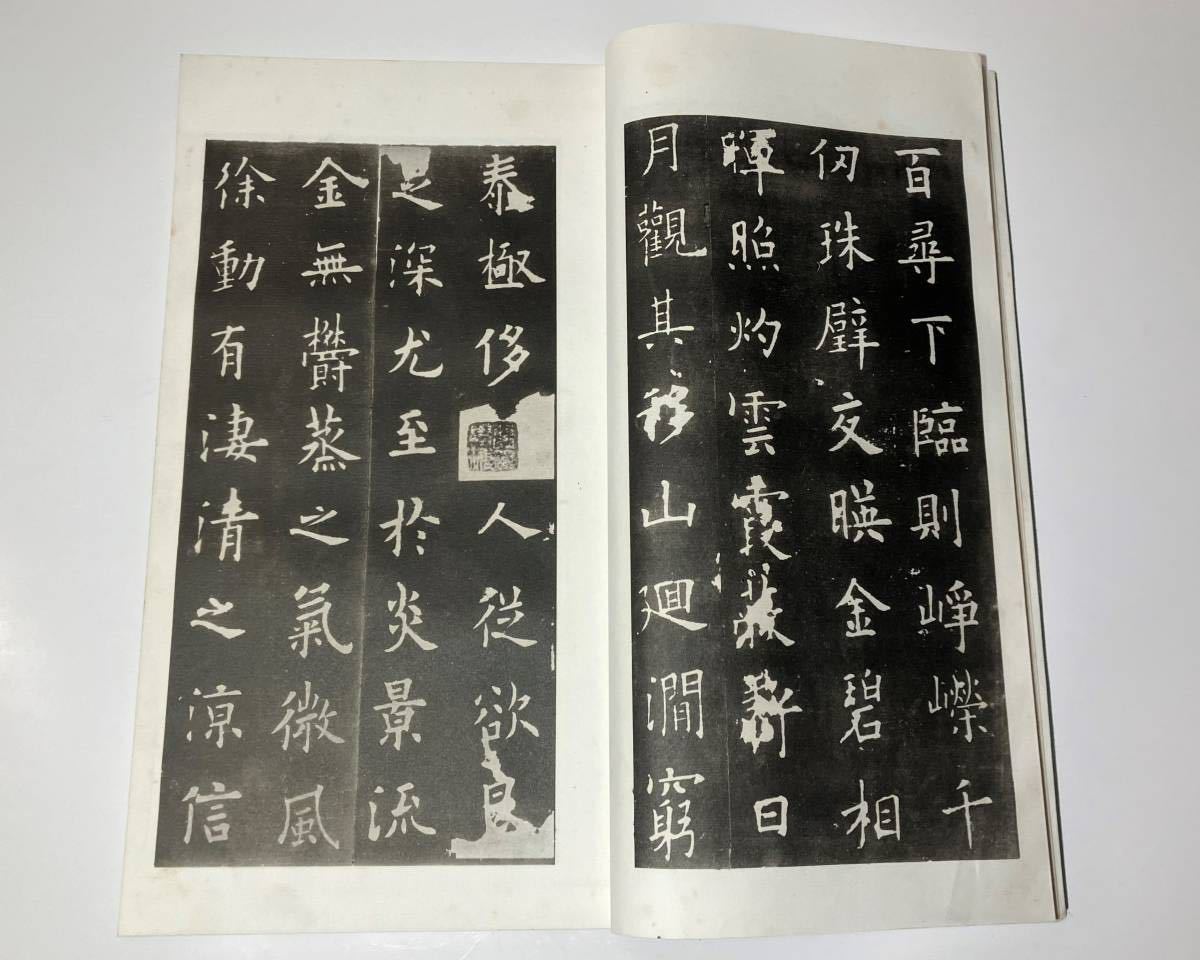 百尋下臨則崢嶸千
仞珠璧交暎金碧相
暉照灼雲霞蔽虧日
月觀其移山廻澗窮
泰極侈人從欲良
足深尤至於炎景流
金無欝蒸之氣微風
徐動有淒清之涼信